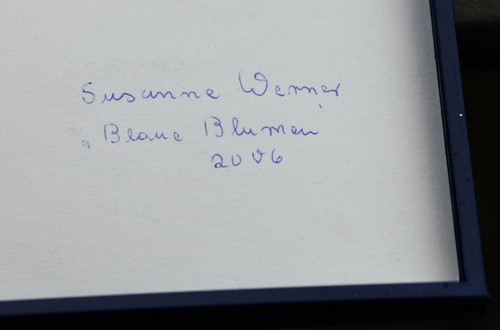 Susanne Werner
„Blaue Blumen
2006